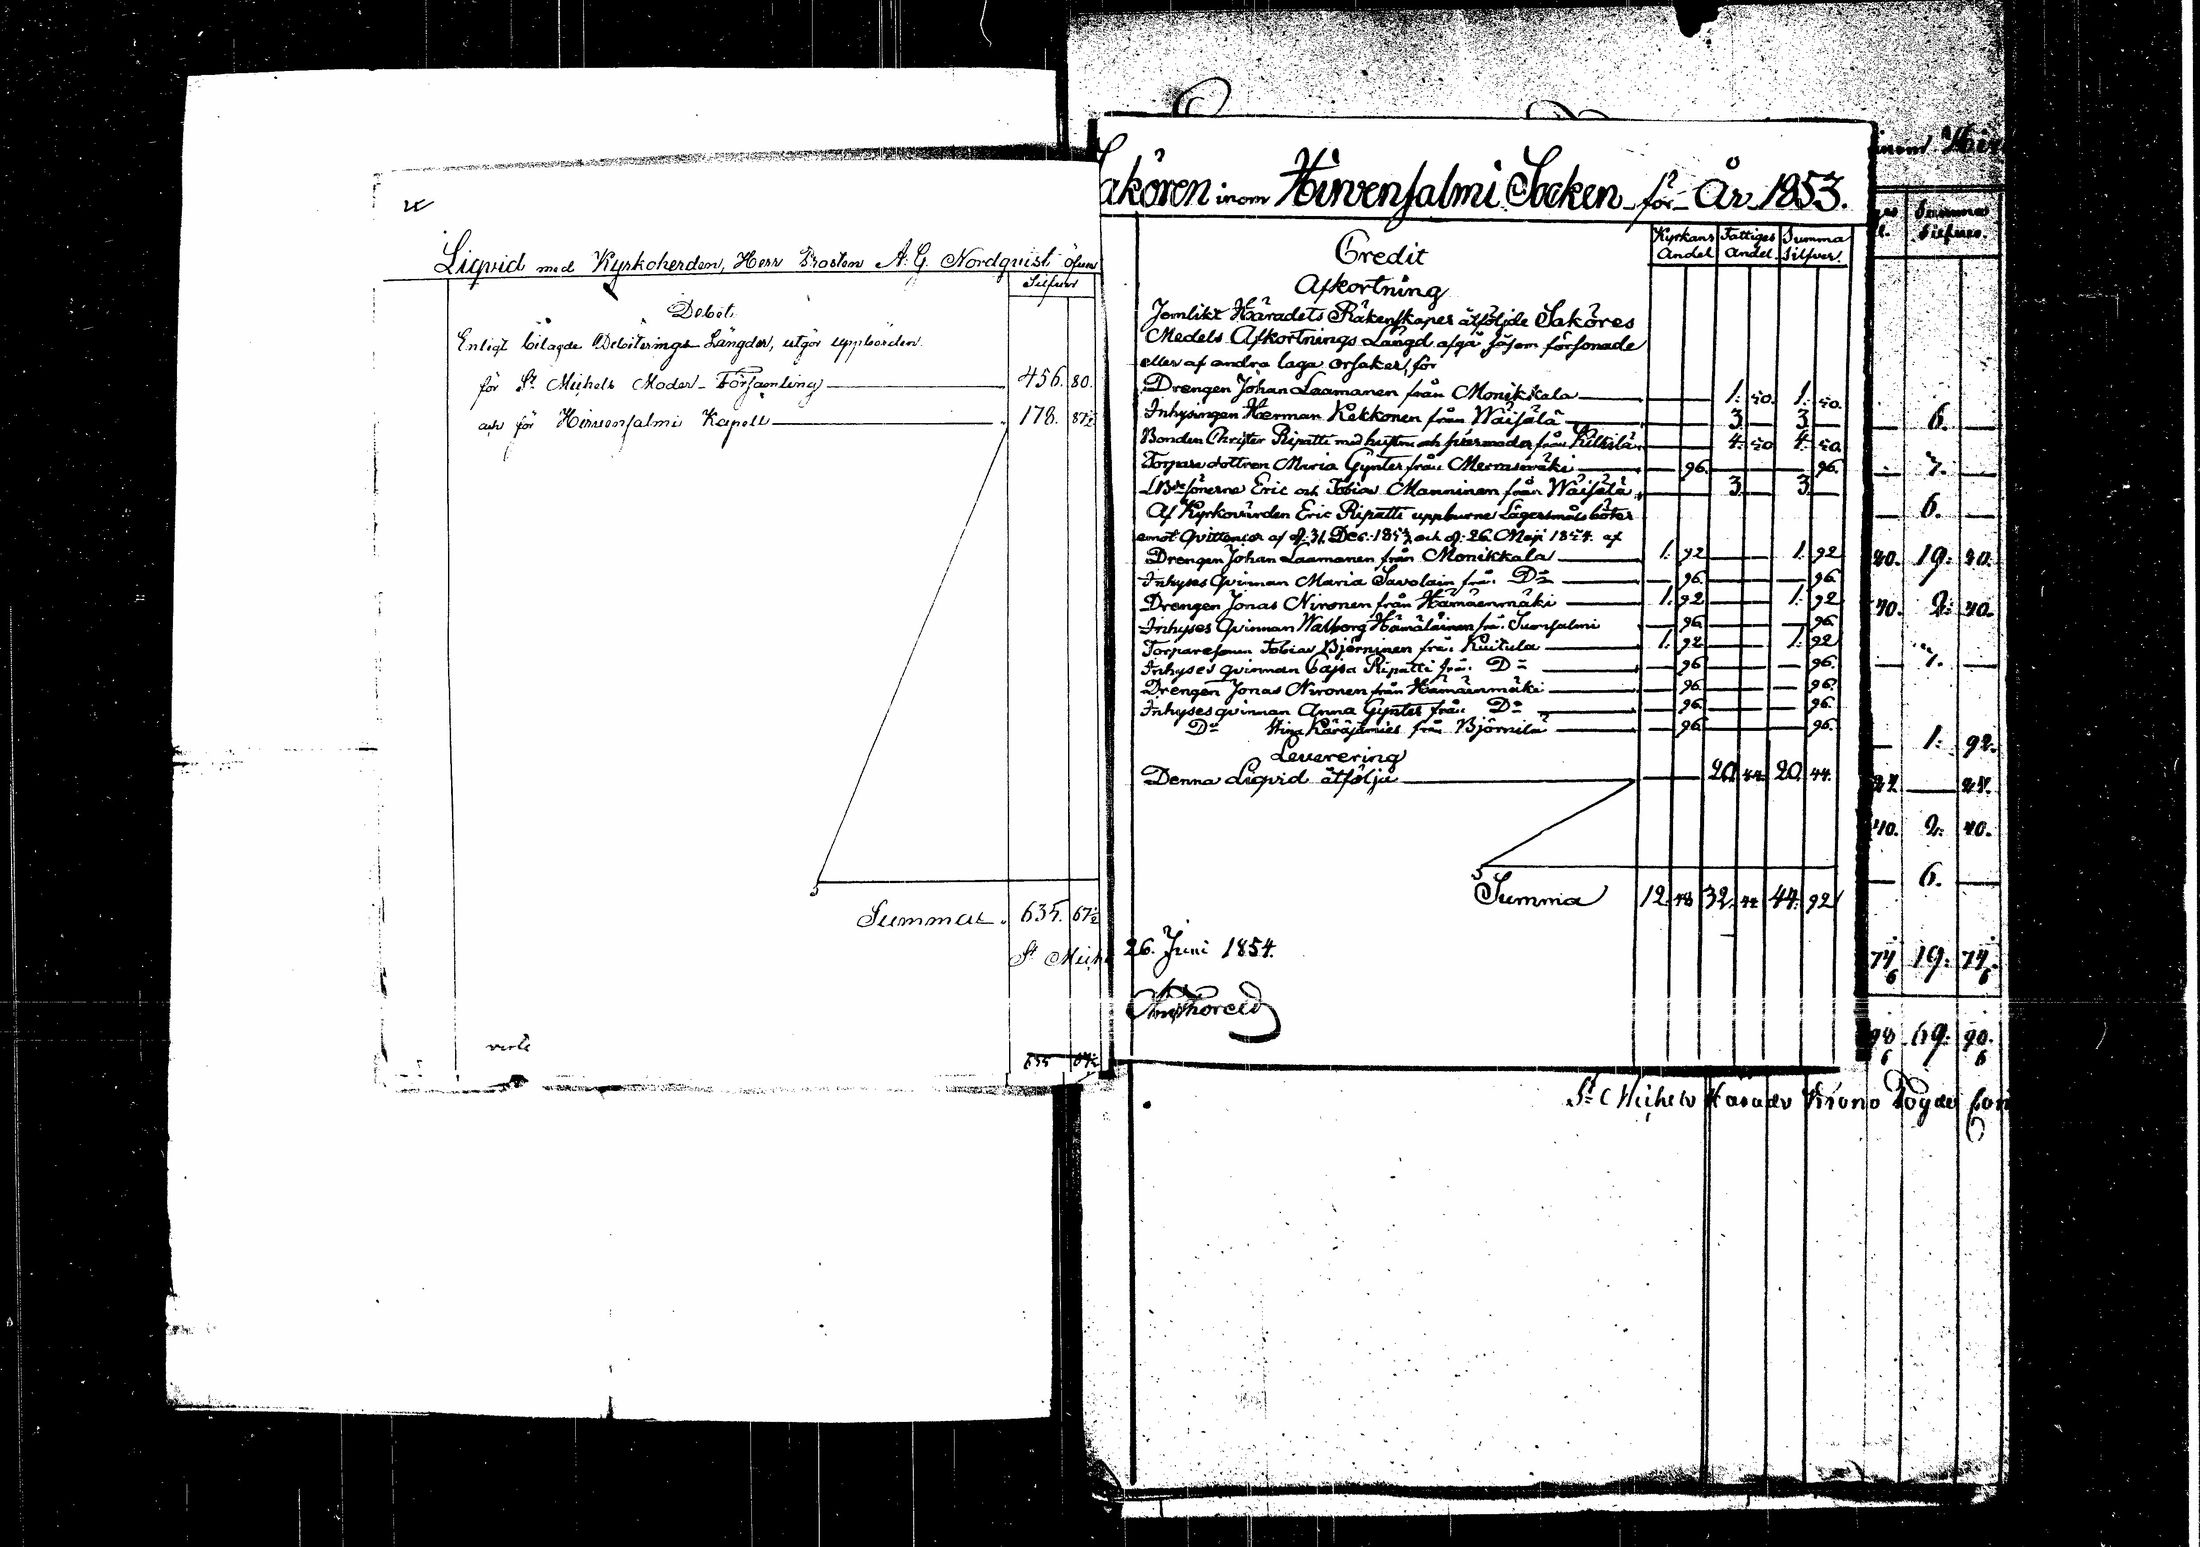 Liqvid med Kyrkoherden, Herr Prosten A. G. Nordqvist öfver
Silfver
Debet.
Enligt bilagde Debiterings Längder, utgör uppbörden
för St Michels Moder-Församling 456. 80.
och för Hirvensalmi Kapell 178. 87½
Summa 635. 67½
St Mich
verte
635 67½
Sakören inom Hirvensalmi Socken för År 1853.
Credit
Kyrkans Andel Fattiges Andel Summa Silfver.
Afkortning
Jemlikt Häradets Räkenskaper åtföljde Saköres
Medels Afkortnings Längd afgå såsom försonade
eller af andra laga orsaker, för
Drengen Johan Laamanen från Monikkala 1. 50. 1. 50.
Inhysingen Herman Kekkonen från Wäisälä 3 3
Bonden Christer Ripatti med hustru och svärmoder från 4. 50 4. 50.
Torpare dottren Maria Gynter från 96. 96.
Sönerne Eric och Tobias Manninen från Wäisälä 3 3
Af Kyrkovärden Eric Ripatti uppburne Lägersmåls böter
emot Qvittencer af d. 31 Dec. 1853 och d. 26 Maji 1854. af
Drengen Johan Laamanen från Monikkala 1. 92 1. 92
Inhyses Qvinnan Maria Savolain från Do 96. 96.
Drengen Jonas Nironen från Hämäenmäki 1. 92 1. 92
Inhyses Qvinnan Walborg Hämäläinen frå. Suonsalmi 96. 96.
Torparesonen Tobias Björninen frå. Kuitula 1. 92 1. 92
Inhyses qvinnan Cajsa Ripatti frå. Do 96 96.
Drengen Jonas Nironen från Hämäenmäki 96. 96.
Inhyses qvinnan Anna Gynter från Do 96. 96.
Do Stina Käräjämies från Björnilä 96. 96.
Levererin​g
Denna Liqvid åtfölja 20. 44. 20. 44.
Summa 12. 48 32. 44 44. 92
26. Juni 1854.
inom Hir
Summa Silfver.
6.
7.
6.
40. 19: 40.
40. 2: 40.
7.
1: 92.
24.
40. 2: 40.
6.
74 19: 74.
6 6
90 69: 90.
6 6
St Michels Härads Krono Fogde Con